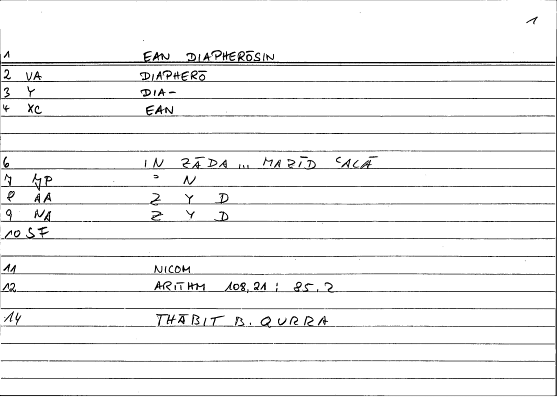 1
1 EAN DIAPHERŌSIN
2 VA DIAPHERŌ
3 Y DIA-
4 XC EAN
6 IN ZĀDA ... MAZĪD ʿALĀ
7 ʾ N
8 AA Z Y D
9 NA Z Y D
10 SF
11 NICOM
12 ARITHM 108,21 : 85.2
14 THĀBIT B. QURRA